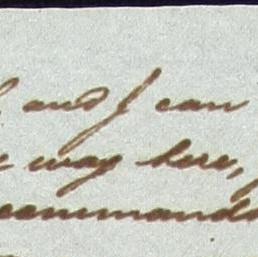 and I can
way here,
commands